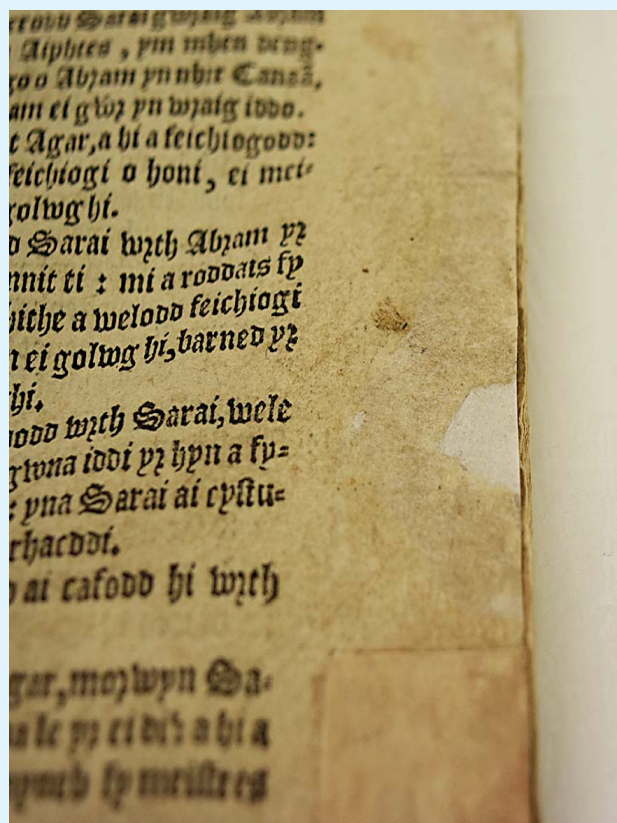 Sarai gwraig Abram
Aiphtes, ym mhen deng-
Abram yn nhir Canaã,
ei gŵr yn wraig iddo.
Agar, a hi a feichiogodd:
feichiogi o honi, ei mei-
golwg hi.
Sarai wrth Abram yr
ti : mi a roddais fy
a welodd feichiogi
ei golwg hi, barned yr
hi.
wrth Sarai, wele
gwna iddi yr hyn a fy-
yna Sarai ai cystu-
rhacddi.
ai cafodd hi wrth
morwyn Sa-
le yr ei di? a hi a
fy meistres